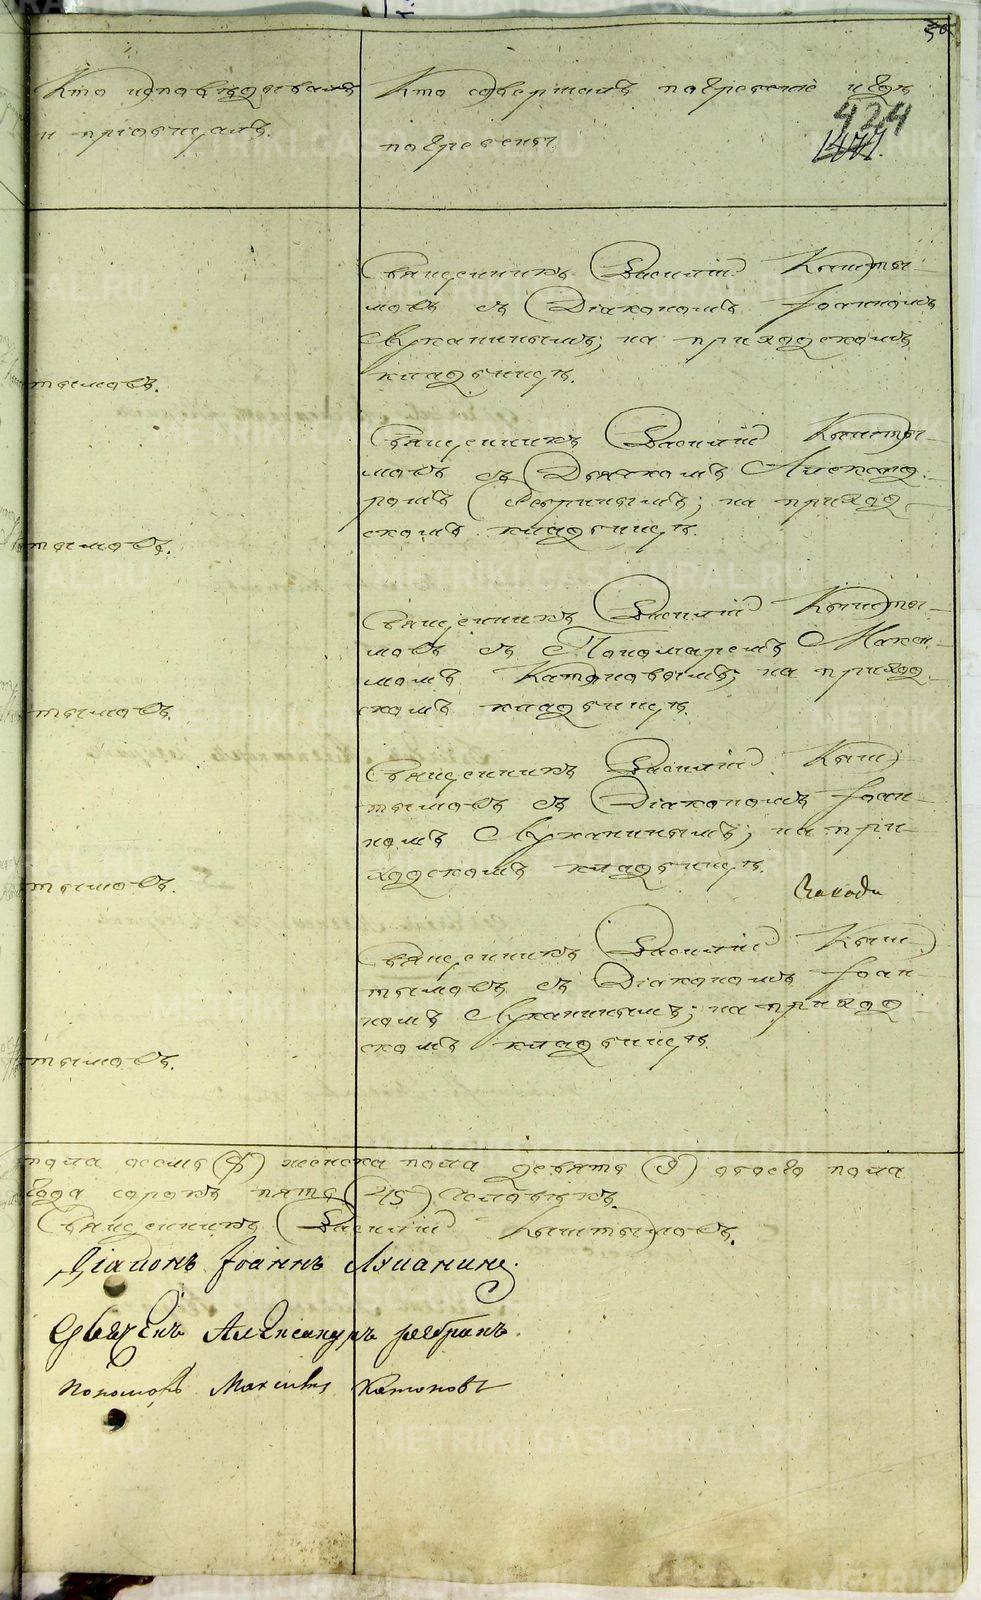 Кто исповѣдывалъ
и пріобщалъ.
Кто совершалъ погребеніе и гдѣ
погребены
424
Священникъ Василій Кышты-
мовъ съ Діакономъ Іоанномъ
Луканинымъ; на приходскомъ
кладбищѣ.
тымовъ.
Священникъ Василій Кышты-
мовъ съ Дьячкомъ Александ-
ромъ на приход-
скомъ кладбищѣ.
тымовъ.
Священникъ Василій Кышты-
мовъ съ Пономаремъ Макси-
момъ Катоновымъ; на приход-
скомъ кладбищѣ.
тымовъ.
Священникъ Василій Кыш-
тымовъ съ Діакономъ Іоан-
номъ Луканинымъ; на при-
ходскомъ кладбищѣ.
тымовъ.
Священникъ Василій Кыш-
тымовъ съ Діакономъ Іоан-
номъ Луканинымъ; на приход-
скомъ кладбищѣ.
тымовъ.
пола осмь женска пола девять обоего пола
года сорокъ пять (45) человѣкъ.
Священникъ Василій Кыштымовъ.
Діаконъ Іоаннъ Луканинъ.
Александръ
Пономарь Максимъ Катоновъ
METRIKI.GASO-URAL.RU